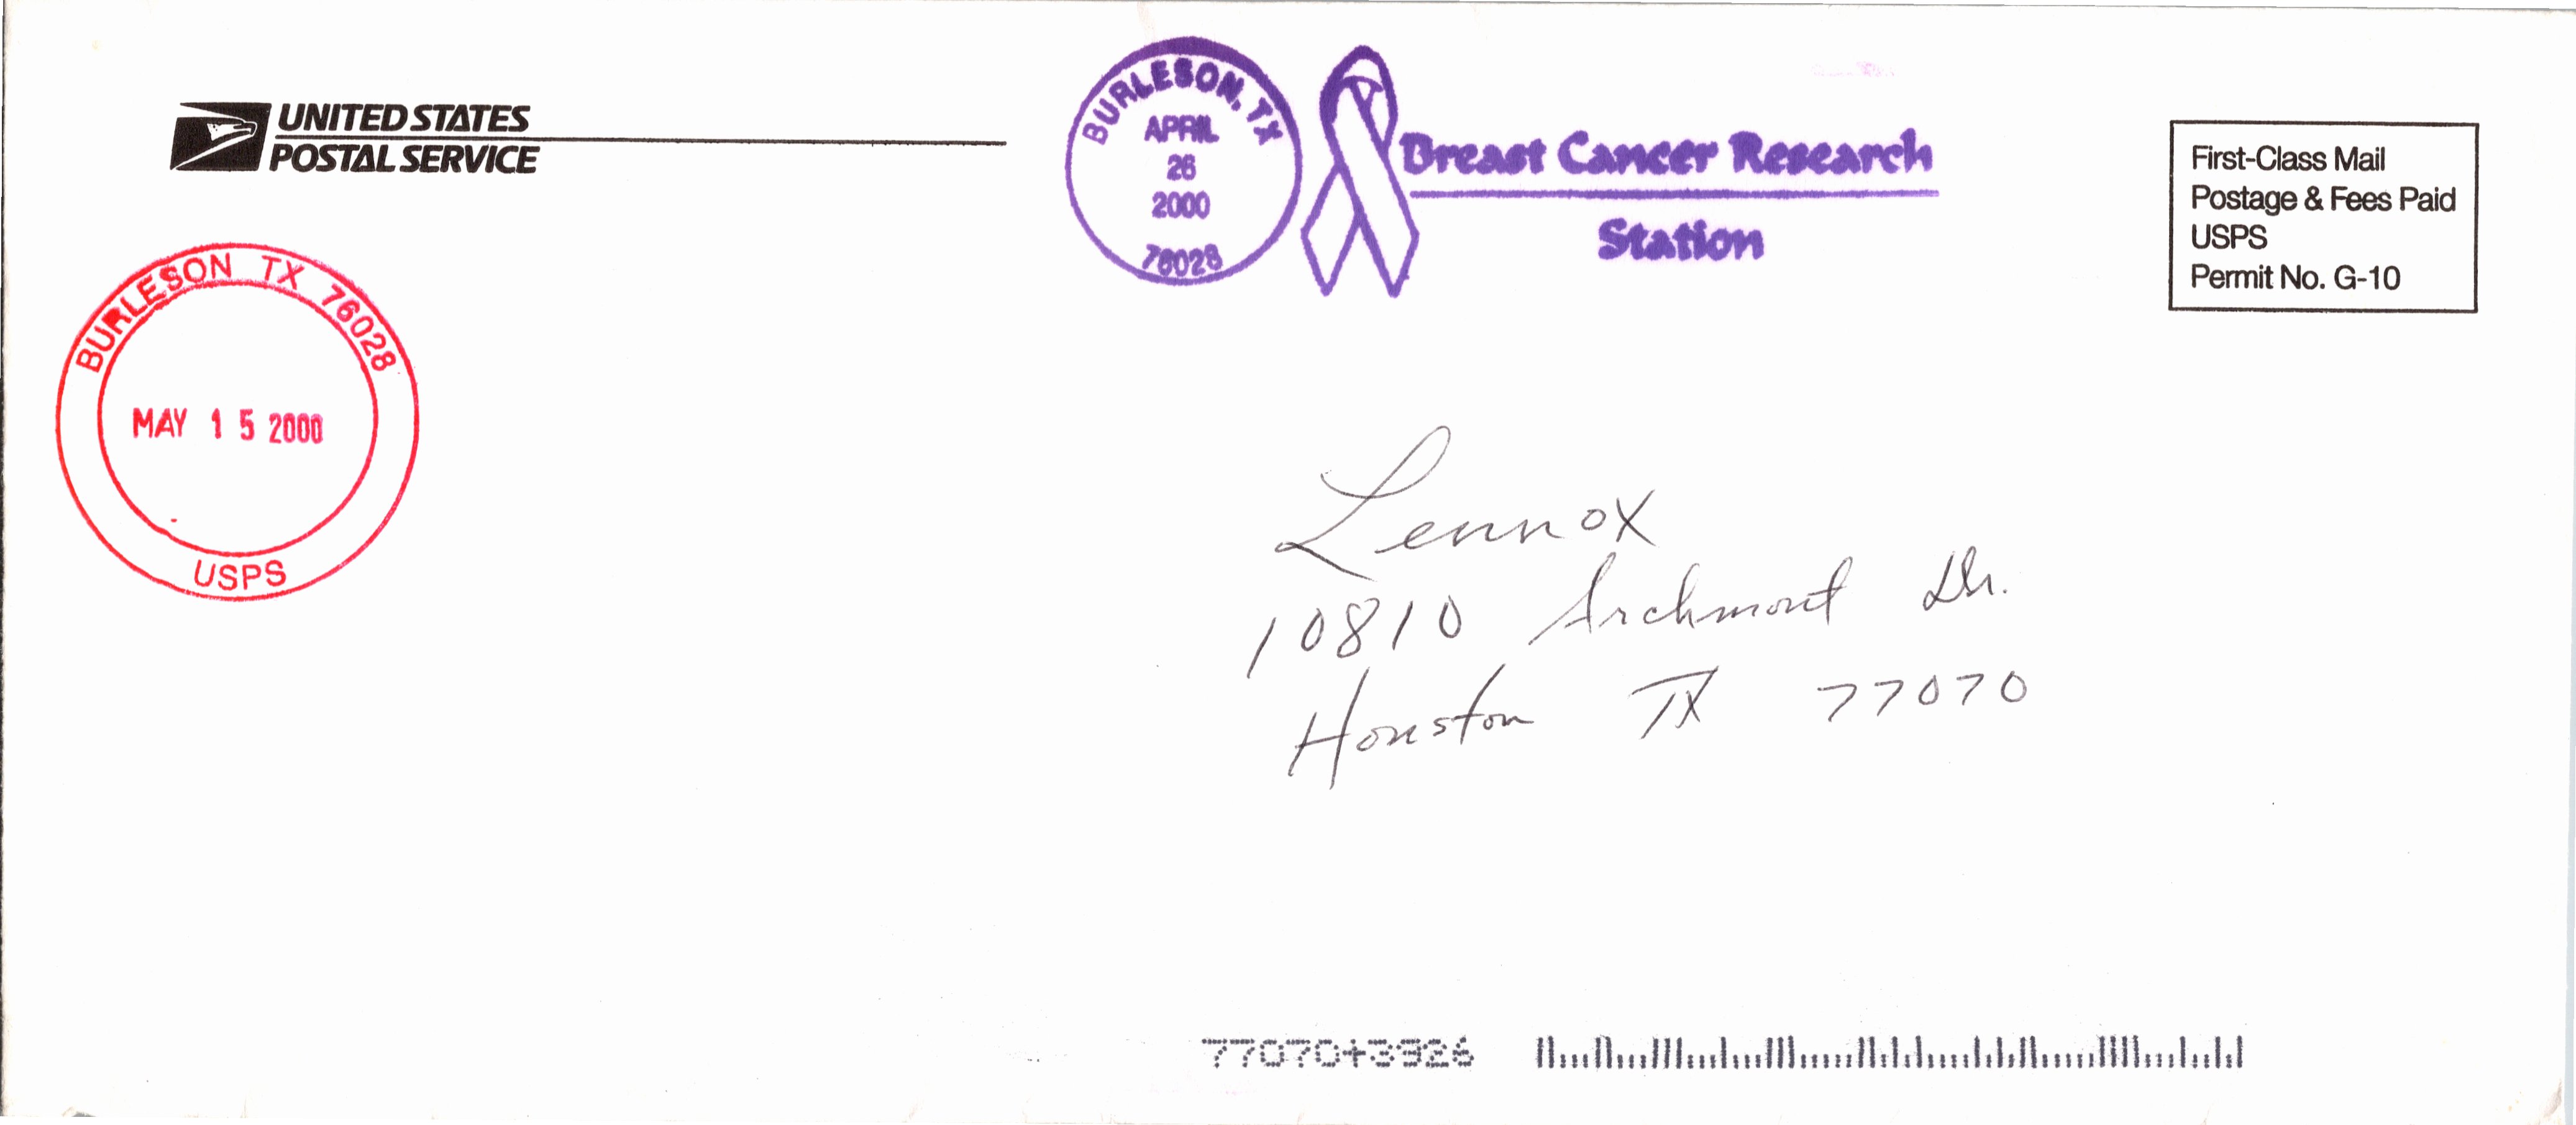 UNITED STATES
POSTAL SERVICE
BURLESON, TX
APRIL
26
2000
76028
Breast Cancer Research
Station
First-Class Mail
Postage & Fees Paid
USPS
Permit No. G-10
BURLESON TX 76028
MAY 15 2000
USPS
Lennox
10810 Archmont Dr.
Houston TX 77070
77070+3926